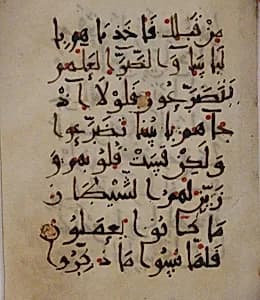 من قبلك فاخذناهم با
لباسا والضرا لعلهم
يتضرعون فلولا اذ
جاهم باسنا تضرعوا
ولكن قست قلوبهم و
زين لهم الشيطان
ما كانوا يعملون
فلما نسوا ما ذكروا